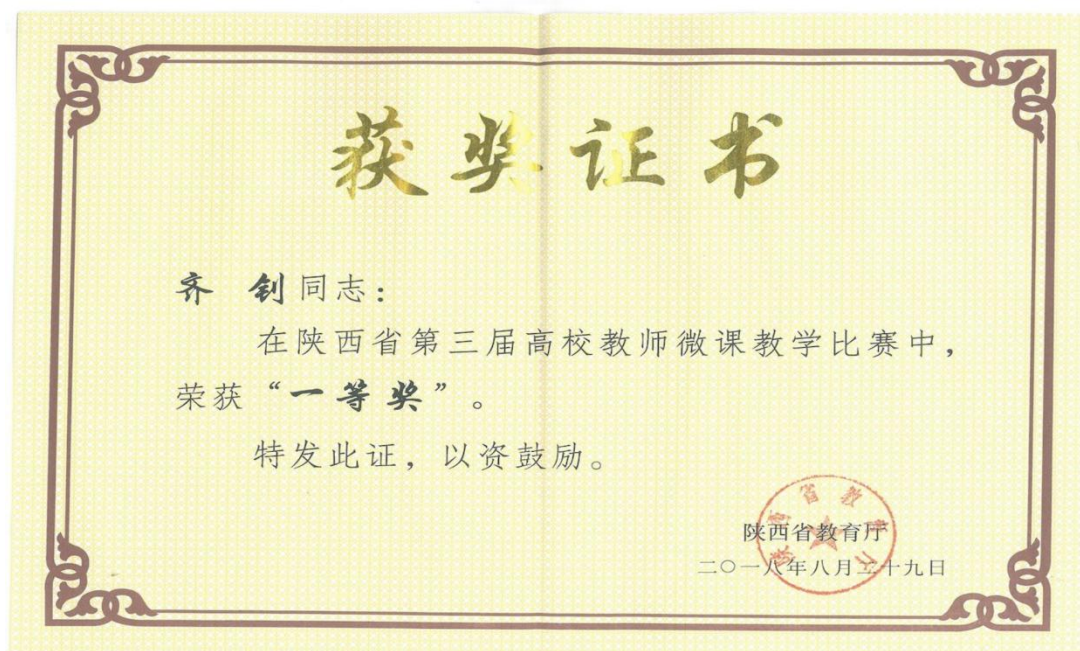 获奖证书
齐 钊同志：
在陕西省第三届高校教师微课教学比赛中，
荣获“一等奖”。
特发此证，以资鼓励。
陕西省教育厅
陕西省教育厅
二○一八年八月二十九日